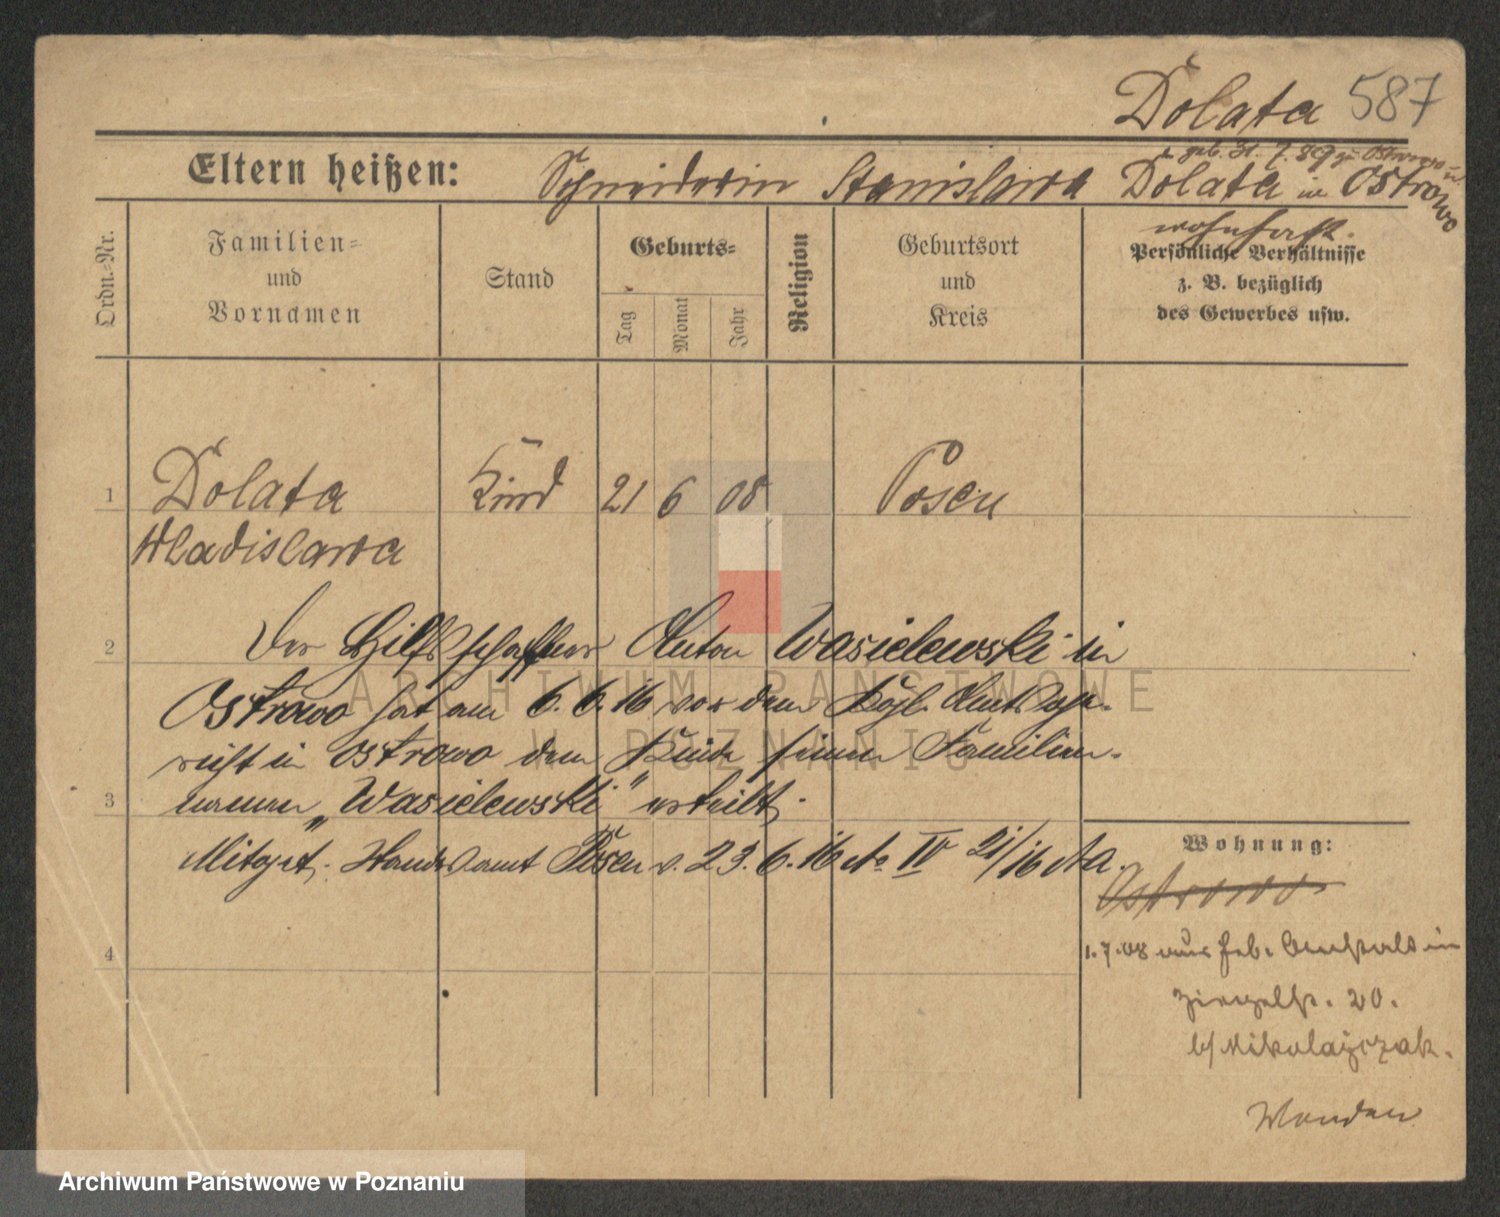 Dolata 587
geb. 31. 7. 89 zu Ostrowo
Eltern heißen: Schneiderin Stanislawa Dolata in Ostrowo
wohnhaft.
Ordn.-Nr.
Familien-
und
Vornamen
Stand
Geburts-
Tag
Monat
Jahr
Religion
Geburtsort
und
Kreis
Persönliche Verhältnisse
z. B. bezüglich
des Gewerbes usw.
1 Dolata Kind 21 6 08 Posen
Wladislawa
2 Der Hilfsschaffner Anton Wasielewski in
Ostrowo hat am 6. 6. 16 vor dem Kögl. Amtsge-
richt in Ostrowo dem Kinde seinen Familien-
3 namen „Wasielewski“ erteilt.
Mitget. Standesamt Posen v. 23. 6. 16 IV 21/16
Wohnung:
Ostrowo
1. 7. 08 aus Heb. Anstalt in
Ziegelstr. 20.
b/ Mikolajczak.
4
Wenden
ARCHIWUM PAŃSTWOWE
W POZNANIU
Archiwum Państwowe w Poznaniu